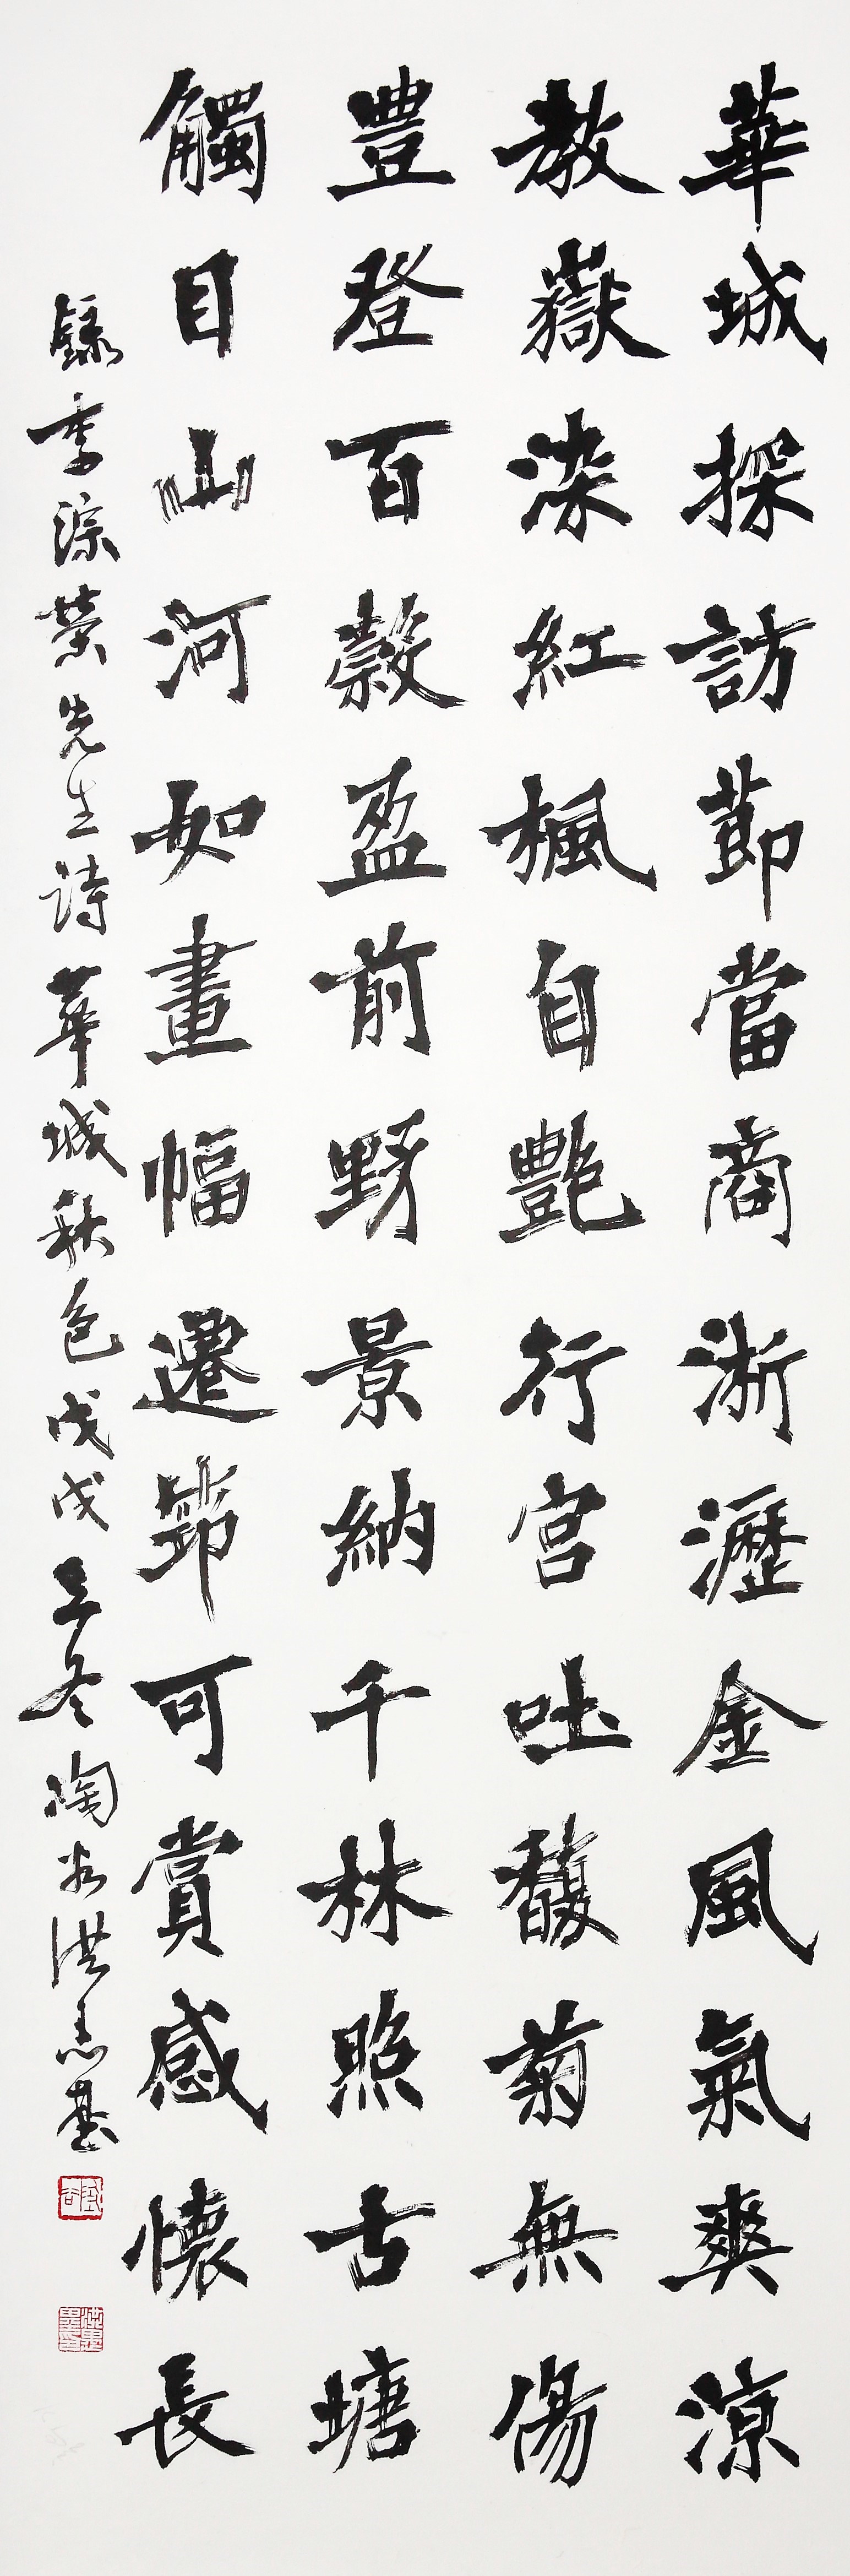 華城探訪節當商淅瀝金風氣爽涼
教嶽染紅楓自艷行宮吐馥菊無傷
豐登百穀盈前野景納千林照古塘
觸目山河如畫幅遷節可賞感懷長
錄李淙榮先生詩華城秋色戊戌立冬陶谷洪愚基